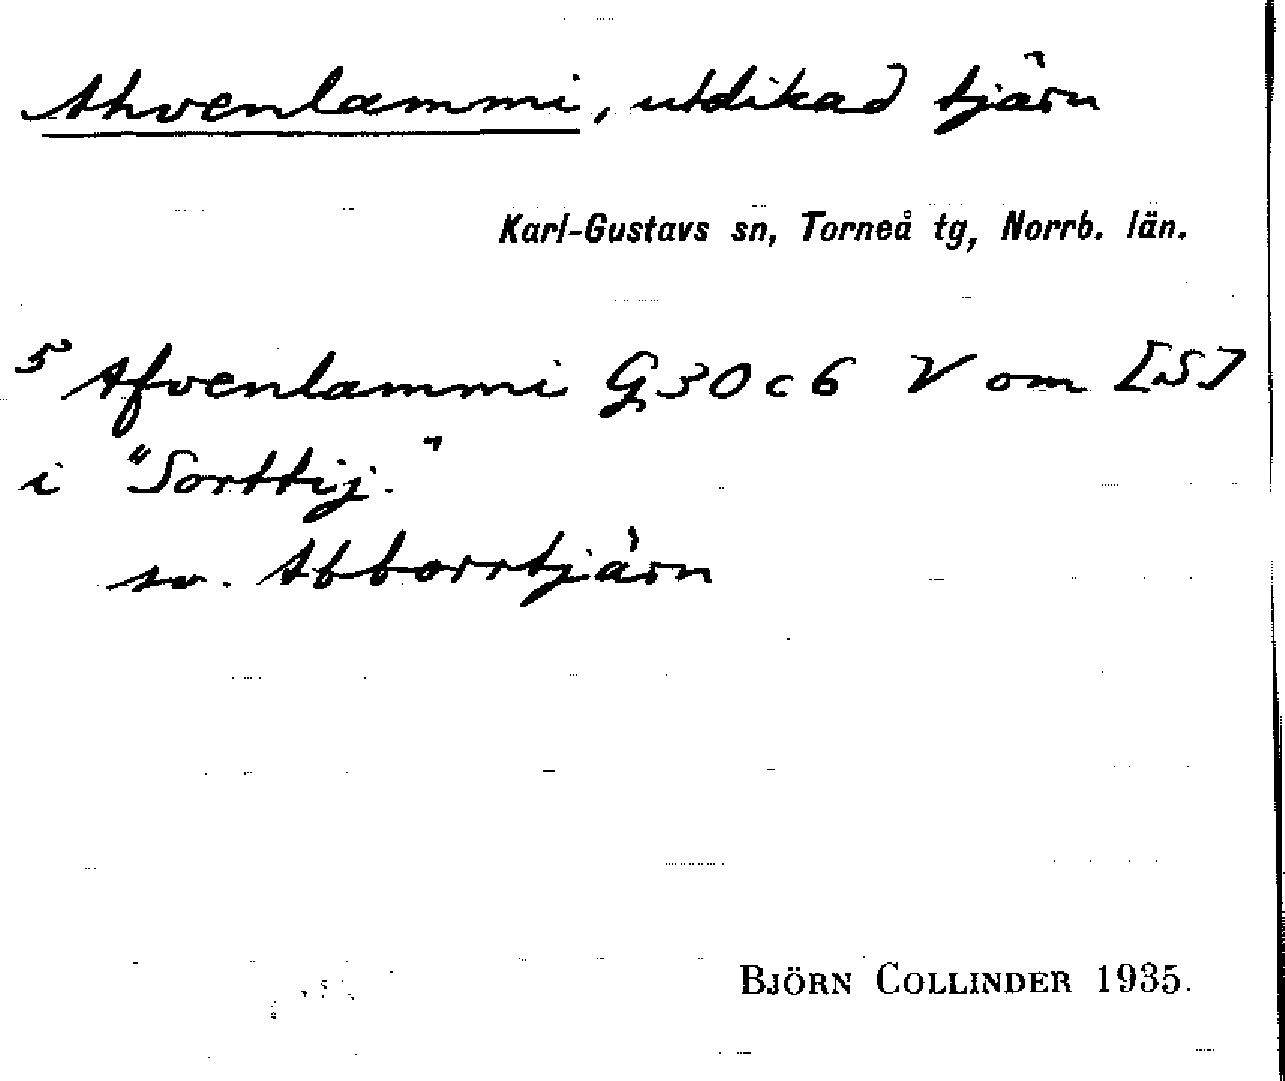 Ahvenlammi, utdikad tjärn
Karl-Gustavs sn, Torneå tg, Norrb. län.
5 Afvenlammi G 30 c 6 V om [S]
i "Sorttij."
sv. Abborrtjärn
BJÖRN COLLINDER 1935.